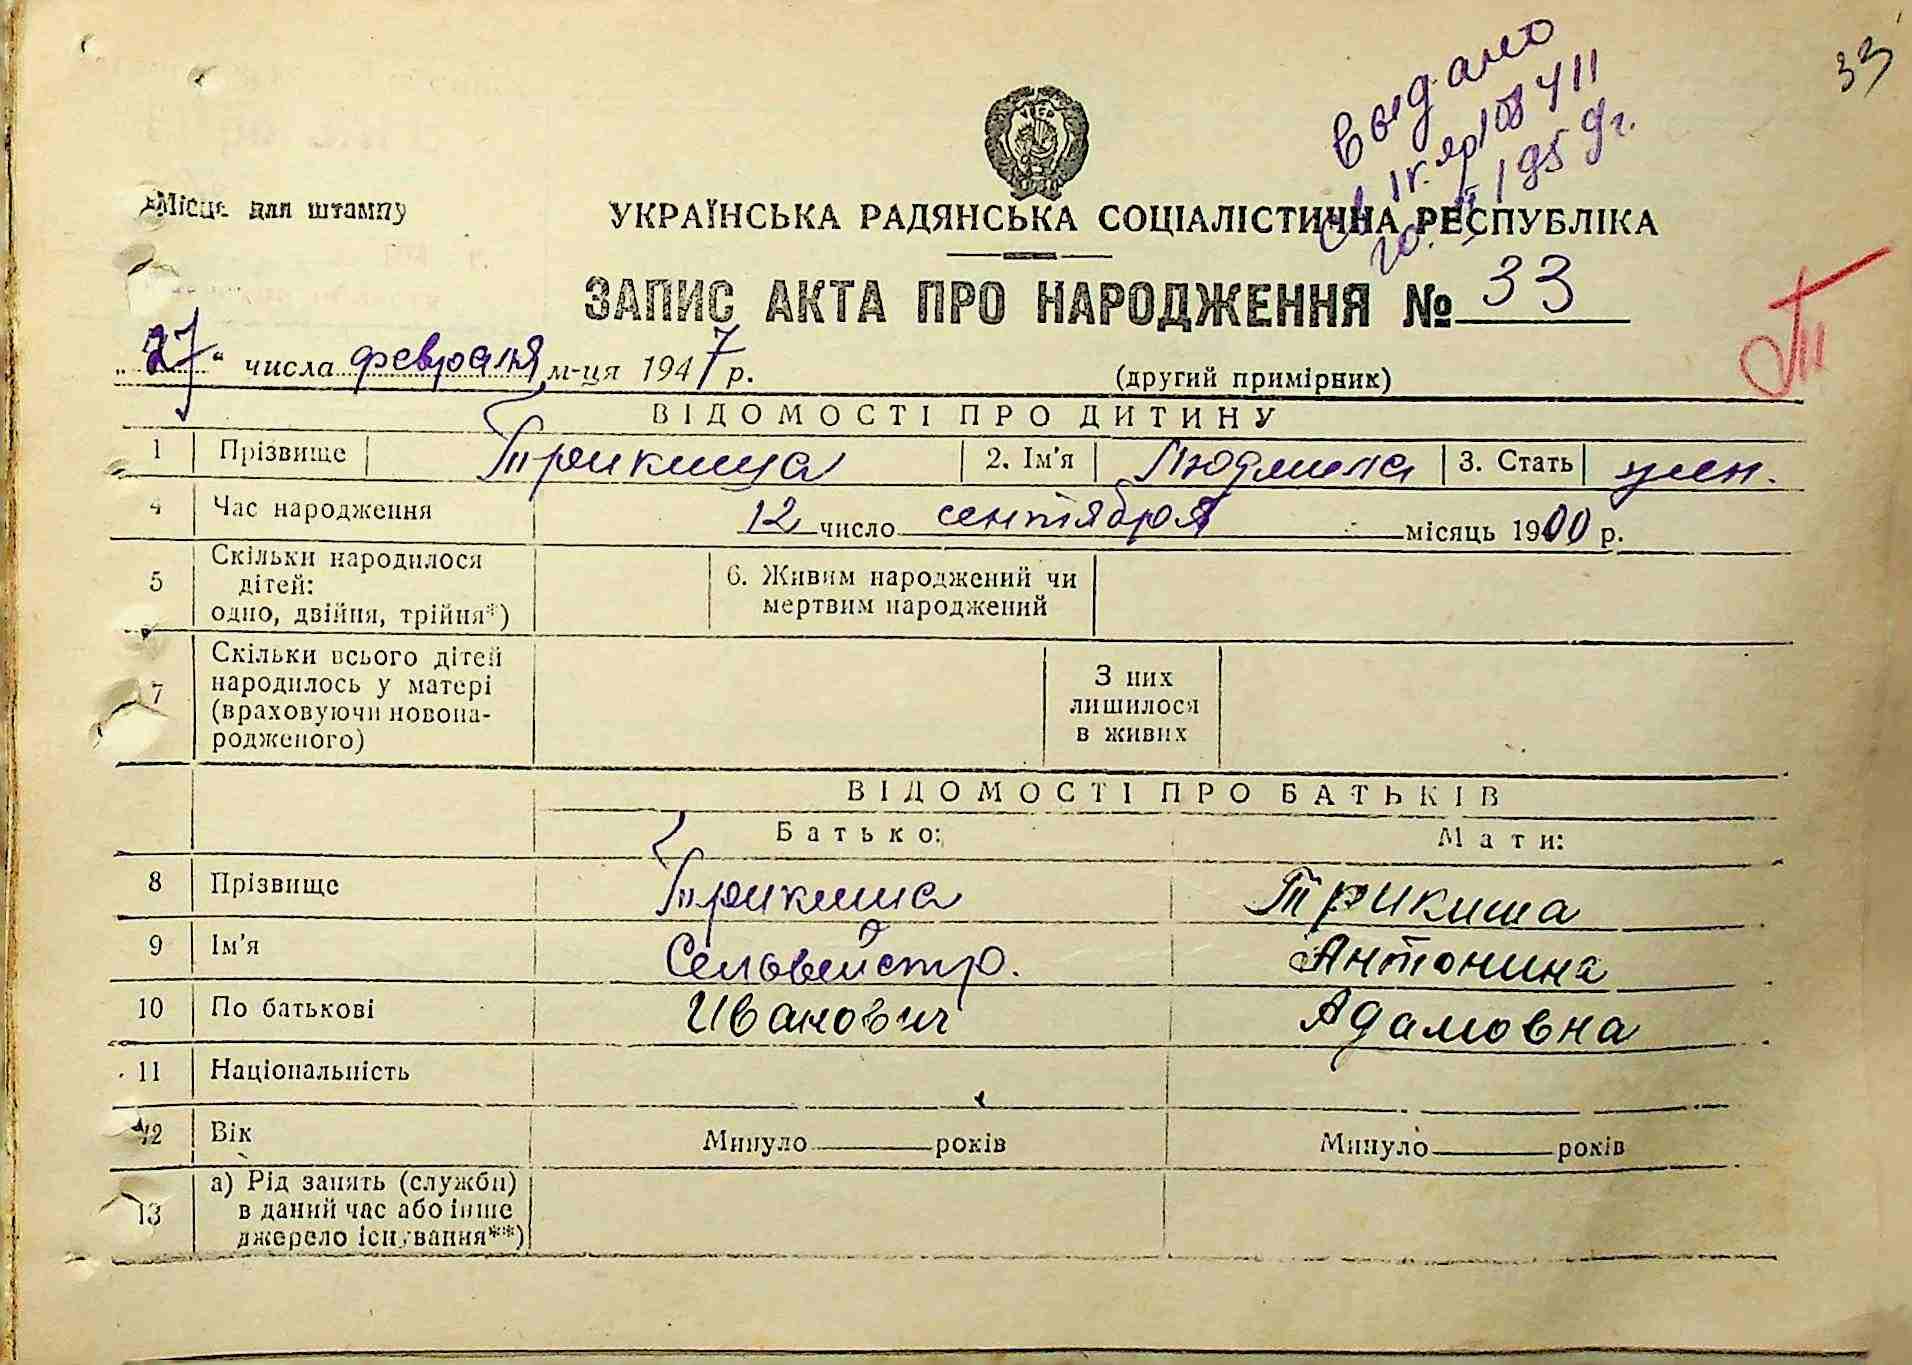 33
Выдано
108411
1959г.
Місце для штампу
УКРАЇНСЬКА РАДЯНСЬКА СОЦІАЛІСТИЧНА РЕСПУБЛІКА
ЗАПИС АКТА ПРО НАРОДЖЕННЯ № 33
„27“ числа февраля м-ця 1947 р.
(другий примірник)
ВІДОМОСТІ ПРО ДИТИНУ
1 Прізвище Трикиша 2. Ім'я Людмила 3. Стать жен.
4 Час народження 12 число сентября місяць 1900 р.
5 Скільки народилося дітей: одно, двійня, трійня*) 6. Живим народжений чи мертвим народжений
7 Скільки всього дітей народилось у матері (враховуючи новона-родженого) З них лишилося в живих
ВІДОМОСТІ ПРО БАТЬКІВ
Батько: Мати:
8 Прізвище Трикиша Трикиша
9 Ім'я Селовейстр. Антонина
10 По батькові Иванович Адамовна
11 Національність
12 Вік Минуло ргоків Минуло років
13 а) Рід занять (служби) в даний час або інше джерело існування**)